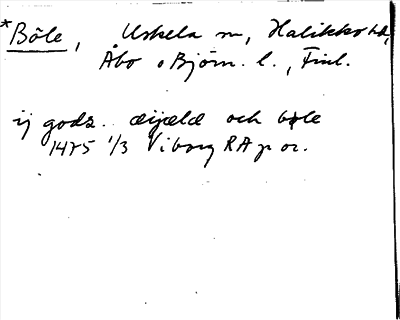 *Böle, Uskela sn, Halikko hd,
Åbo o Björn. l., Finl.
ij godz.. æijælæ och bøle
1475 1/3 Viborg RA p or.